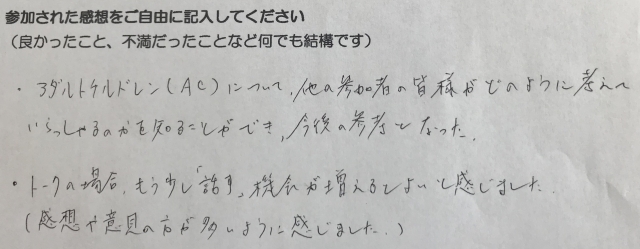 参加された感想をご自由に記入してください
（良かったこと、不満だったことなど何でも結構です）
・アダルトチルドレン(AC)について、他の参加者の皆様がどのように考えて
いらっしゃるのかを知ることができ、今後の参考となった。
・トークの場合、もう少し「話す」機会が増えるとよいと感じました。
(感想や意見の方が多いように感じました。)